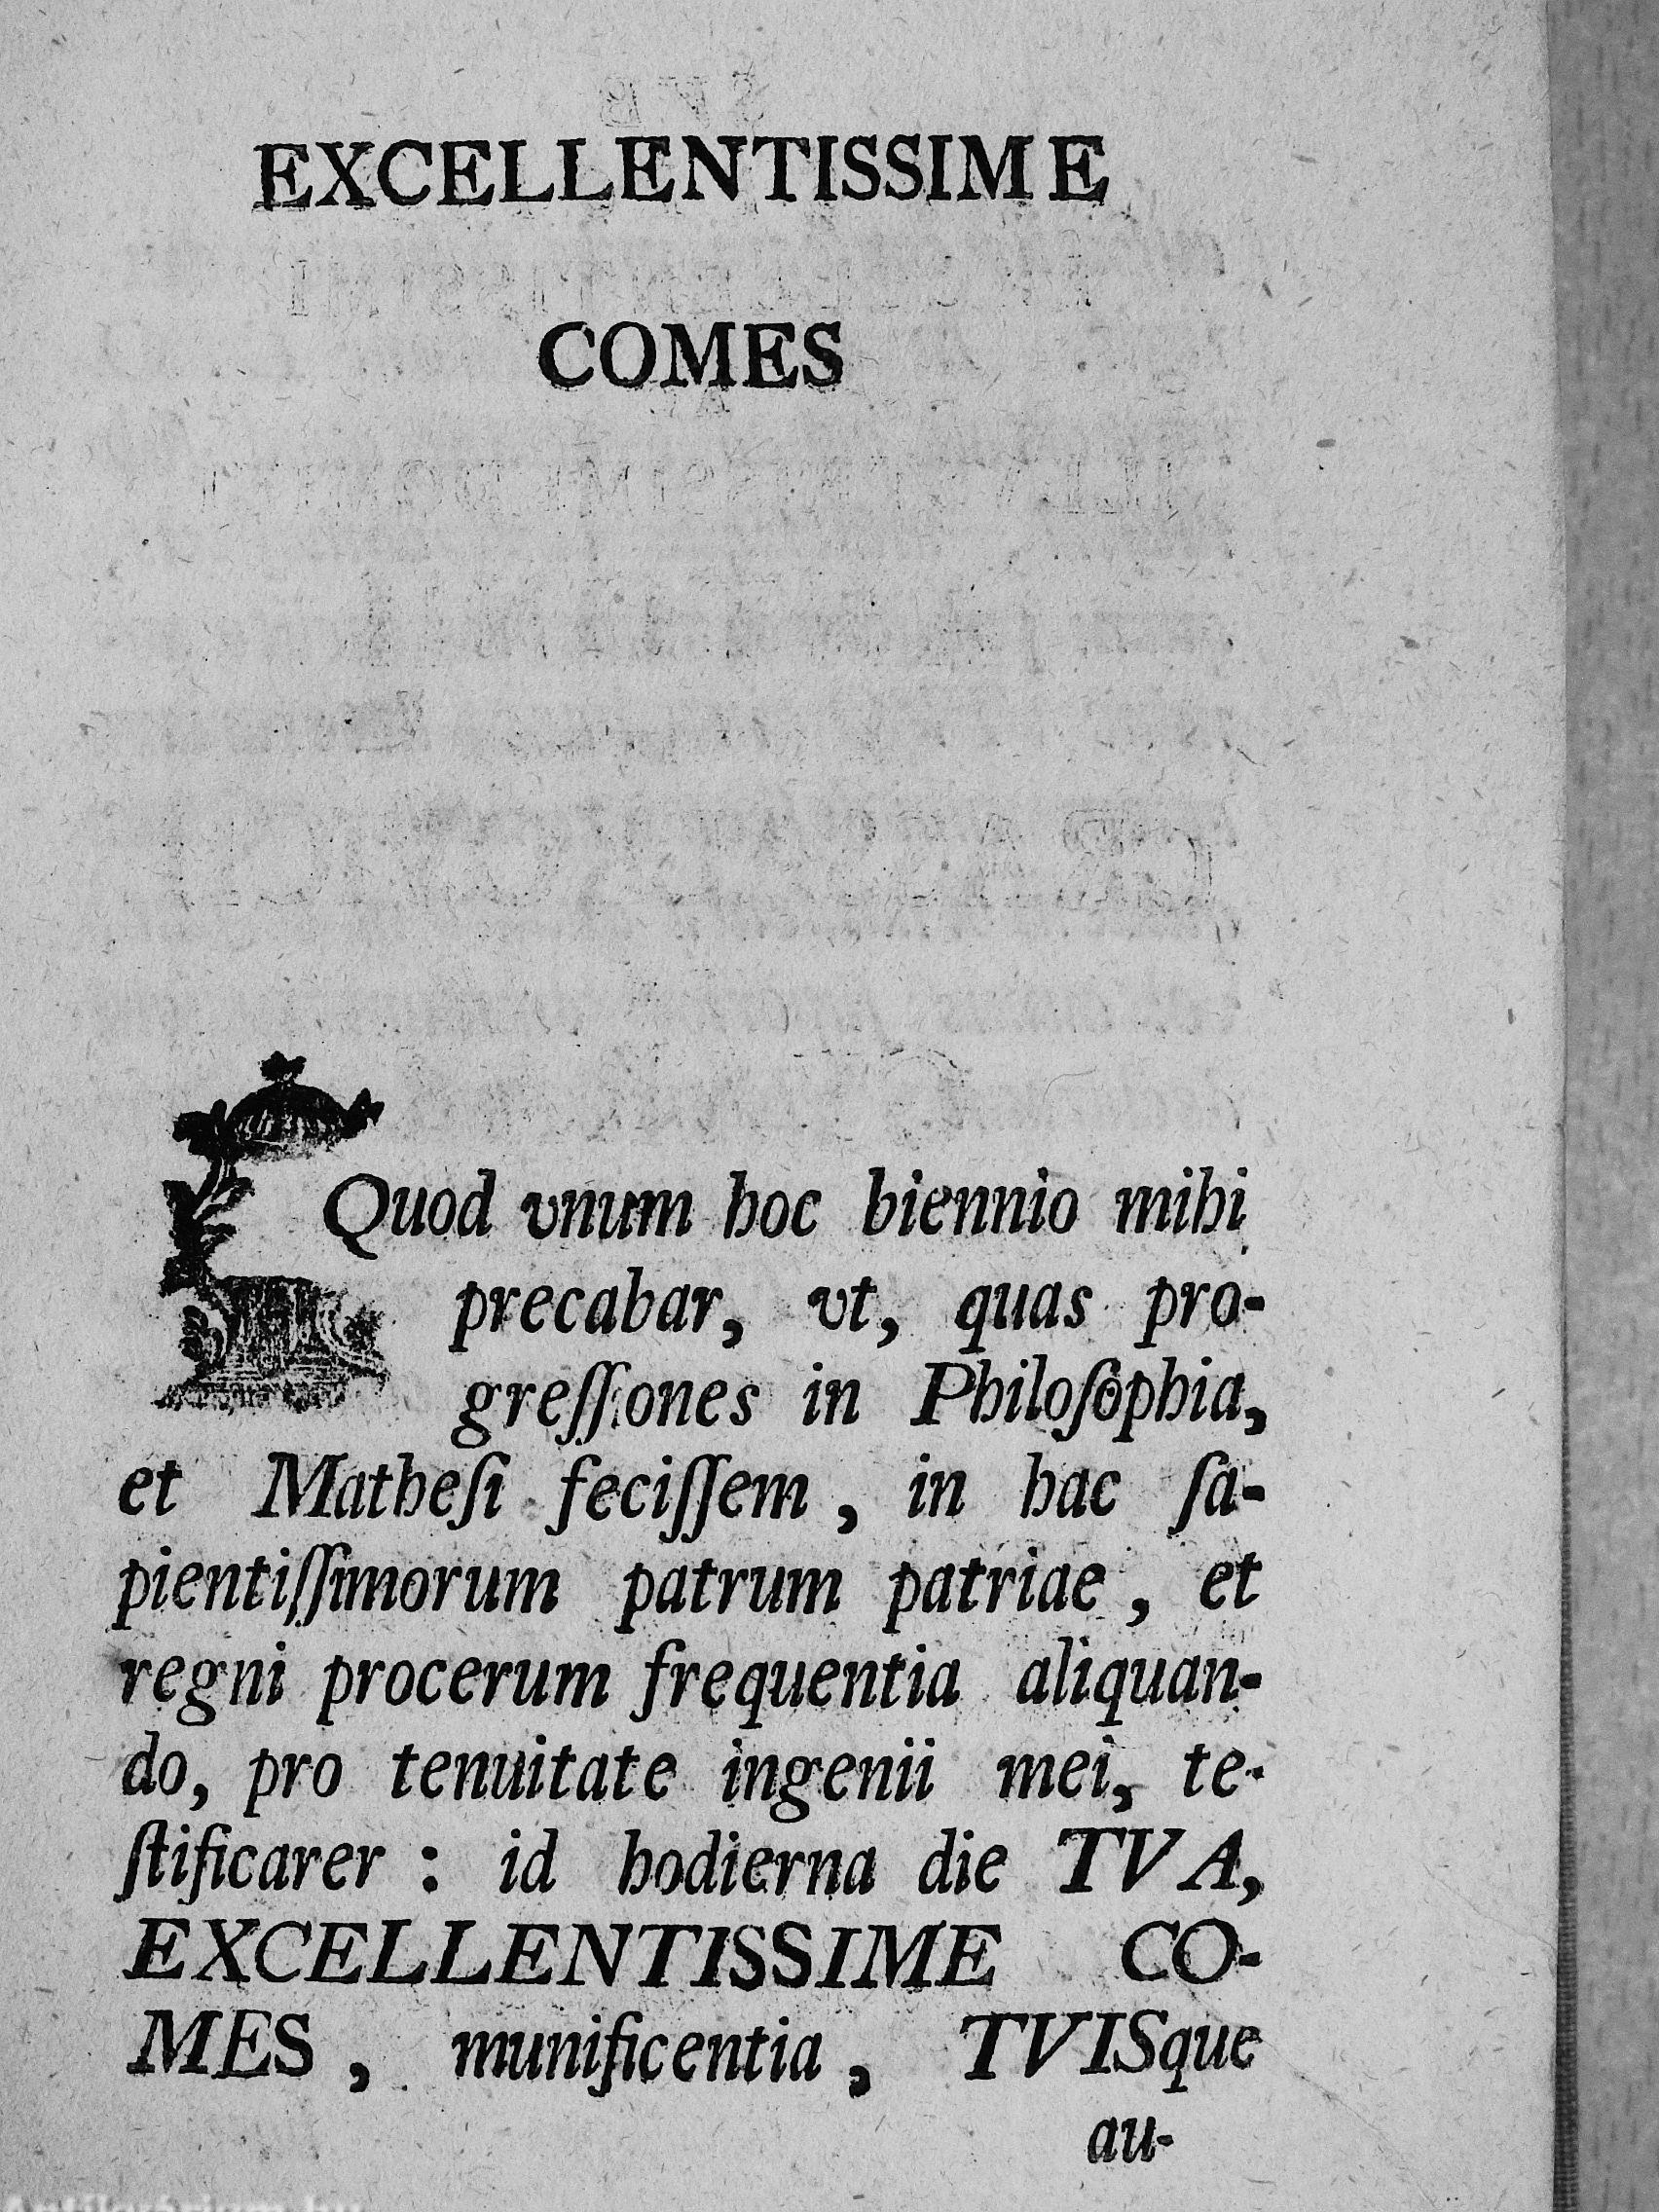 EXCELLENTISSIME
COMES
Quod vnum hoc biennio mihi
precabar, vt, quas pro-
greſſiones in Philoſophia,
et Matheſi feciſſem, in hac ſa-
pientiſſimorum patrum patriae, et
regni procerum frequentia aliquan-
do, pro tenuitate ingenii mei, te-
ſtificarer : id hodierna die TVA,
EXCELLENTISSIME CO-
MES, munificentia, TVISque
au-